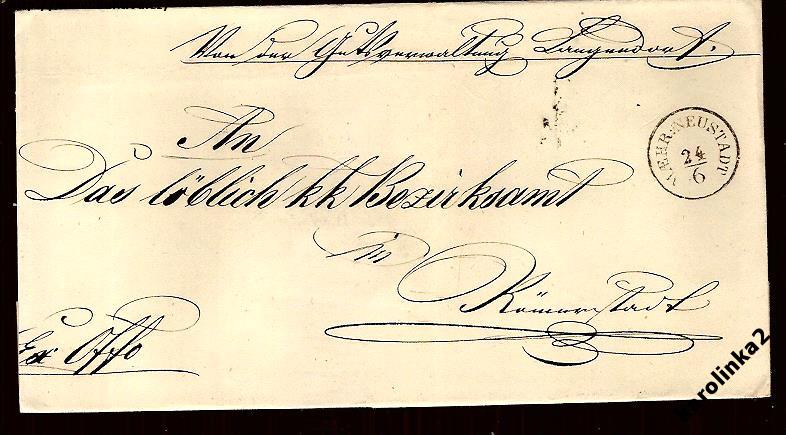 Von der Gutsverwaltung Langendorf.
MAEHR:NEUSTADT
24/6
An
Das löblich kk Bezirksamt
in
Römerstadt
Ex Offo
karolinka2